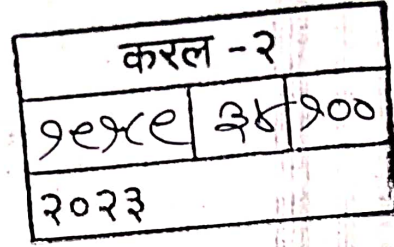 करल -२
१९५९ ३४ १००
२०२३